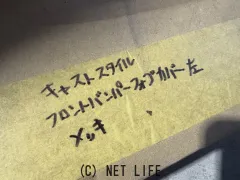 キャストスタイル
フロントバンパーフォグカバー左
メッキ
(C) NET LIFE